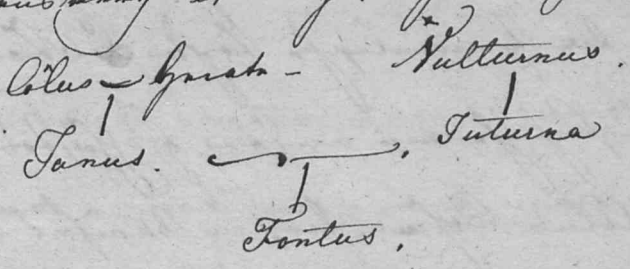 Cölus – Hecate – Vulturnus.
Janus. Juturna
Fontus.